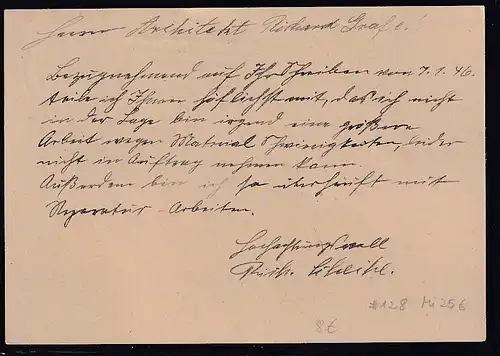 Herrn Architekt Richard Graf!
Bezugnehmend auf Ihr Schreiben von 7.1.46.
teile ich Ihnen höflichst mit, das ich nicht
in der Lage bin irgend eine größere
Arbeit wegen Material Schwirigkeiten, leider
nicht in Auftrag nehmen kann.
Außerdem bin ich ja überhäuft mit
Reparatur-Arbeiten.
Hochachtungsvoll
#128 Mi 256
8€